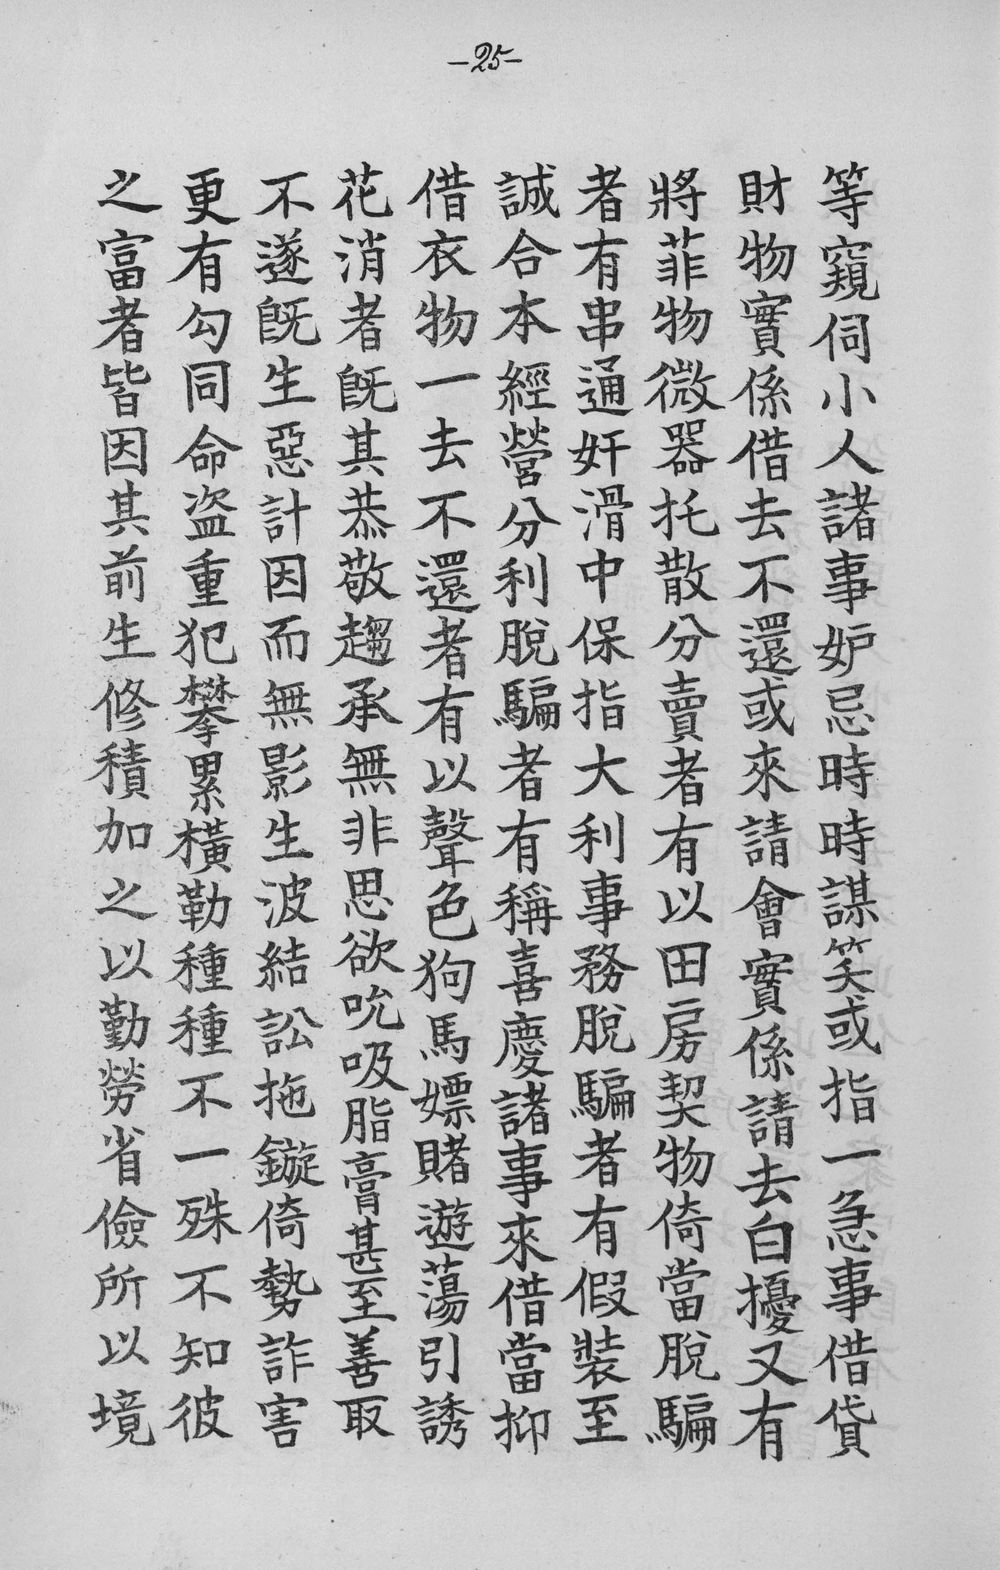 -25-
等窺伺小人諸事妒忌時時謀笑或指一急事借貸
財物實係借去不還或來請會實係請去白擾又有
將菲物微器托散分賣者有以田房契物倚當脫騙
者有串通奸滑中保指大利事務脫騙者有假裝至
誠合本經營分利脫騙者有稱喜慶諸事來借當抑
借衣物一去不還者有以聲色狗馬嫖賭遊蕩引誘
花消者既其恭敬趨承無非思欲吮吸脂膏甚至善取
不遂既生惡計因而無影生波結訟拖鏇倚勢詐害
更有勾同命盗重犯攀累橫勒種種不一殊不知彼
之富者皆因其前生修積加之以勤勞省儉所以境